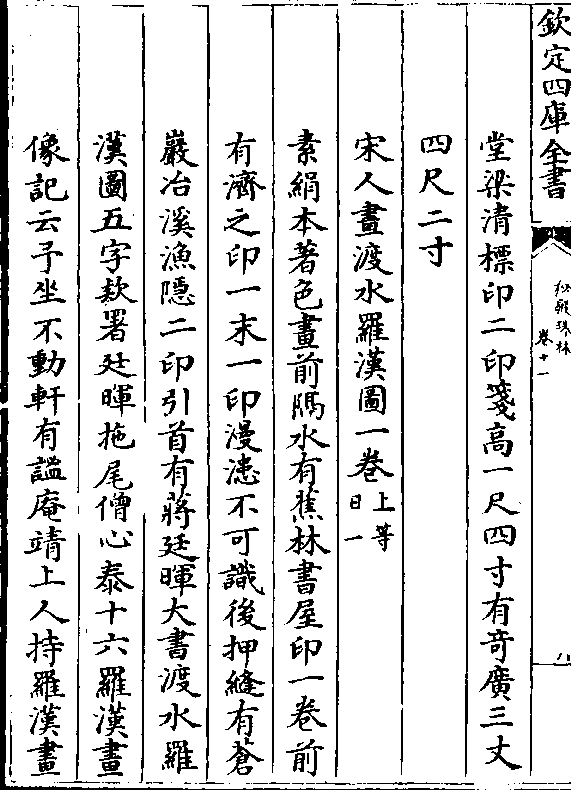 欽定四庫全書
秘殿珠林
卷十一
八
堂梁清標印二印箋髙一尺四寸有竒廣三丈
四尺二寸
宋人畫渡水羅漢圖一卷上等日一
素絹本著色畫前隔水有蕉林書屋印一卷前
有濟之印一末一印漫漶不可識後押縫有蒼
巖冶溪漁隠二印引首有蔣廷暉大書渡水羅
漢圖五字欵署廷暉拖尾僧心泰十六羅漢畫
像記云予坐不動軒有謐庵靖上人持羅漢畫